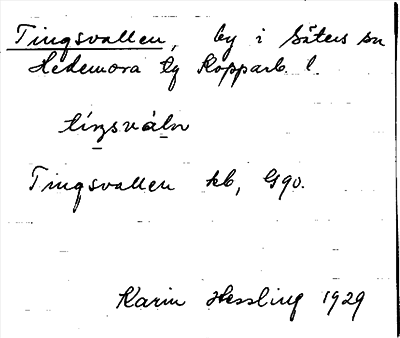 Tingsvallen, by i Säters sn
Hedemora tg Kopparb. l.
tíŋsváln
Tingsvallen kb, G90.
Karin Hessling 1929